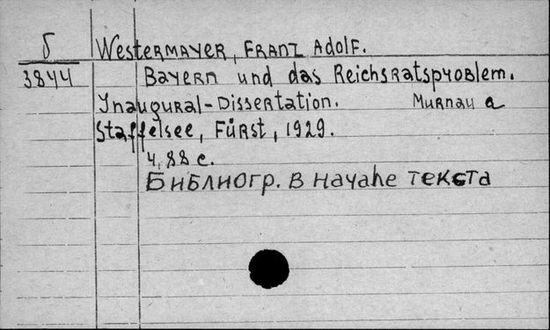 Б Westermayer, Franz Adolf.
3844 Bayern und das Reichsratsproblem.
Inaugural-Dissertation. Murnau a
Staffelsee, Fürst, 1929.
4, 88 с.
Библиогр. в начале текста